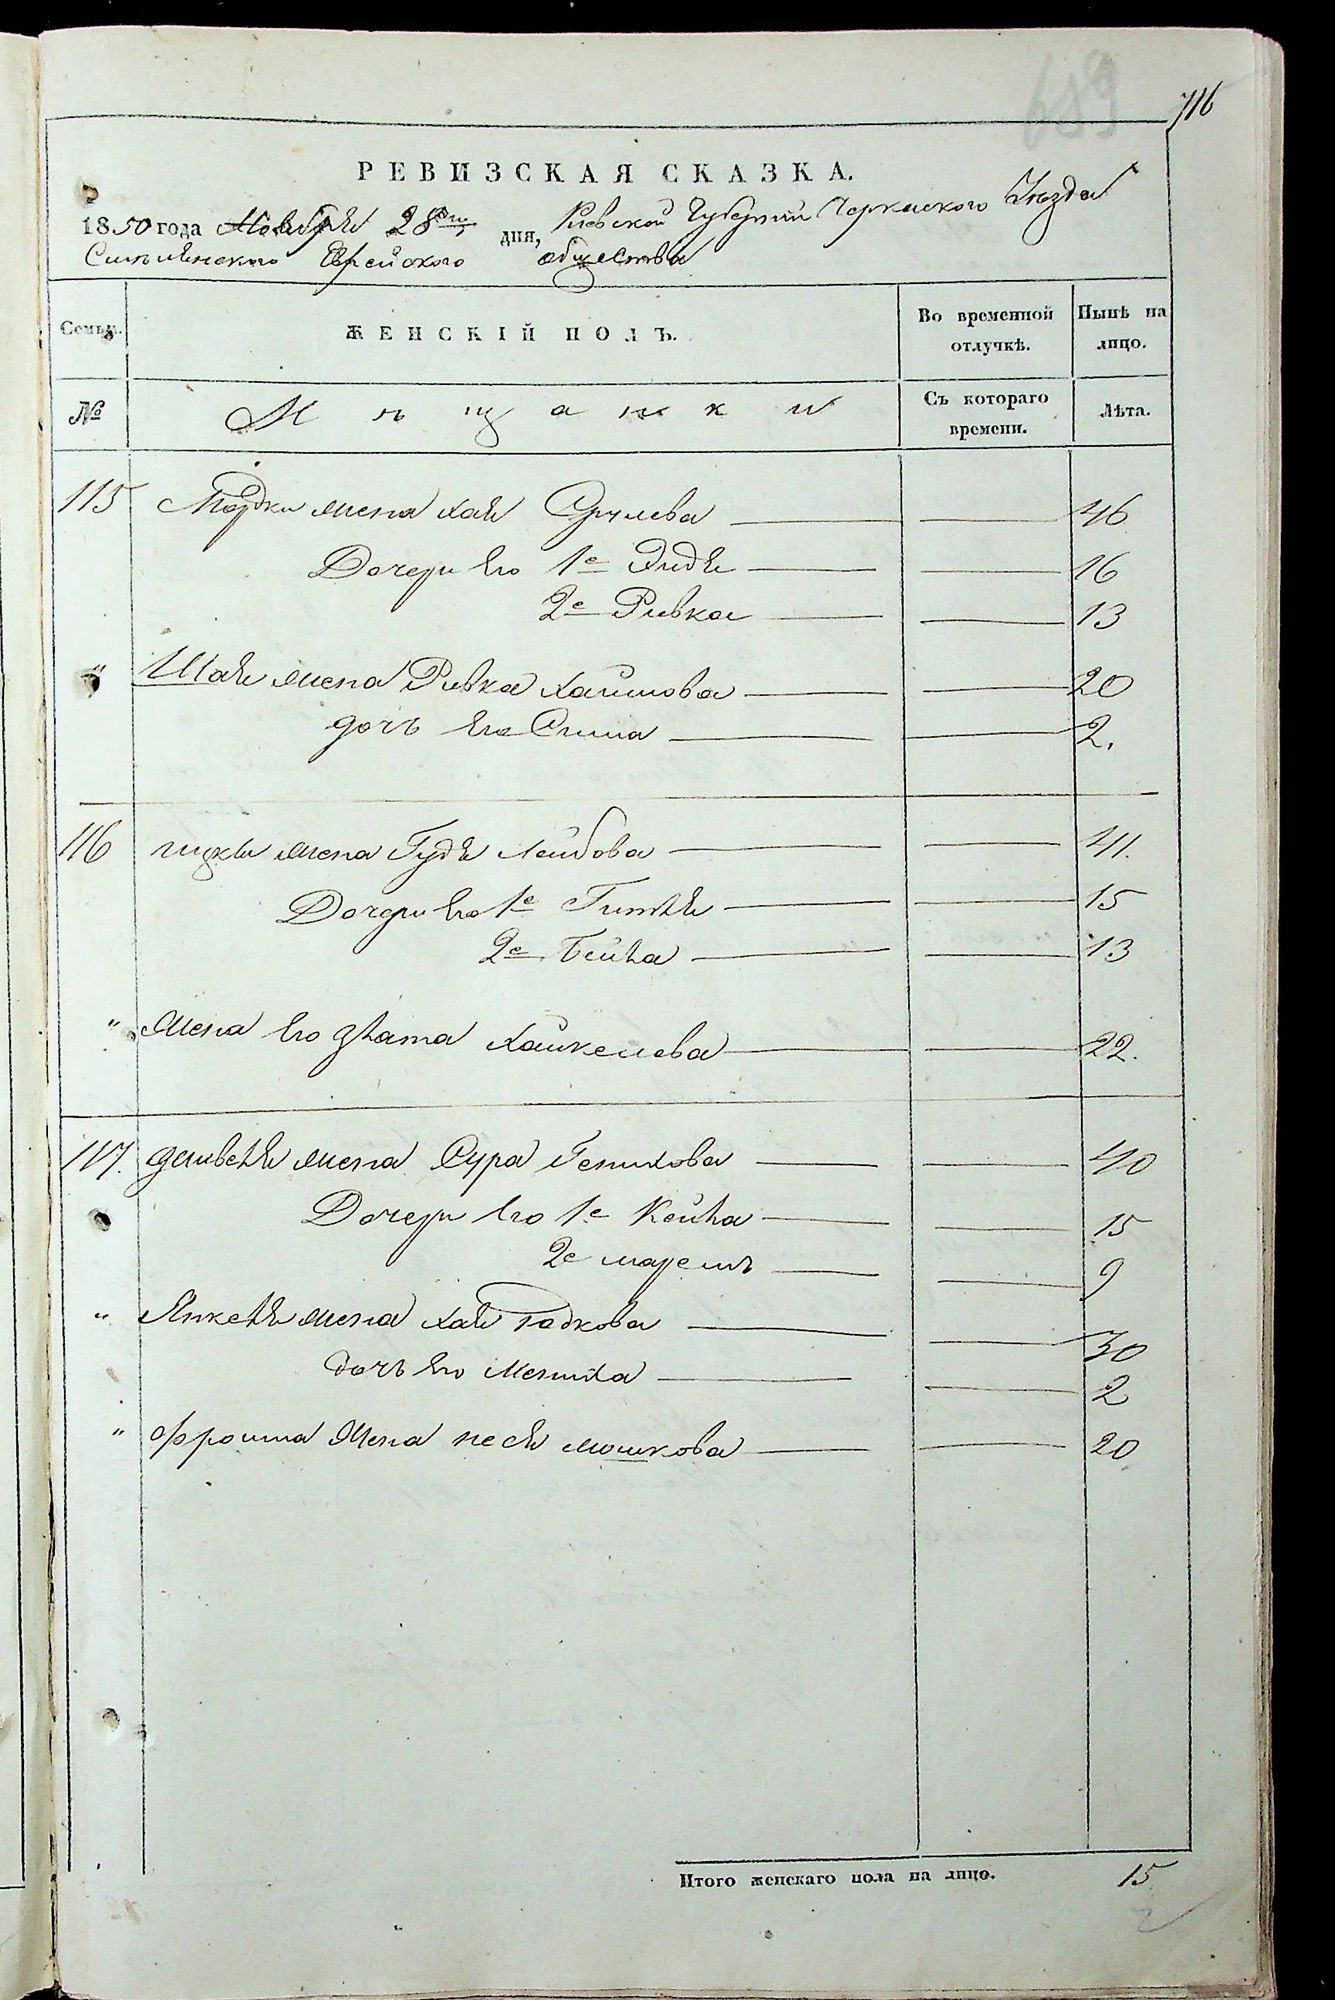 689
716
РЕВИЗСКАЯ СКАЗКА.
1850 года Ноября 28го дня, Киевской Губернии Черкаского Уѣзда
Смѣлянского Еврейского общества
Семьи. ЖЕНСКІЙ ПОЛЪ. Во временной отлучкѣ. Нынѣ на лицо.
№ Мѣщанки Съ котораго времени. Лѣта.
115 Мордки жена Хая Срулева 46
Дочери его 1е Эидя 16
2е Ривка 13
" Шаи жена Ривка Хаимова 20
дочь его Сима 2.
116 жена Гудя Лейбова 41.
Дочери его 1е Гитля 15
2е Бейла 13
" Жена его Злата 22.
117. жена Сура Генихова 40
Дочери его 1е Кейла 15
2е Маремъ 9
" Янкеля жена Хая 30
дочь его Мениха 2
" Фроима жена Песя Мошкова 20
Итого женскаго пола на лицо. 15